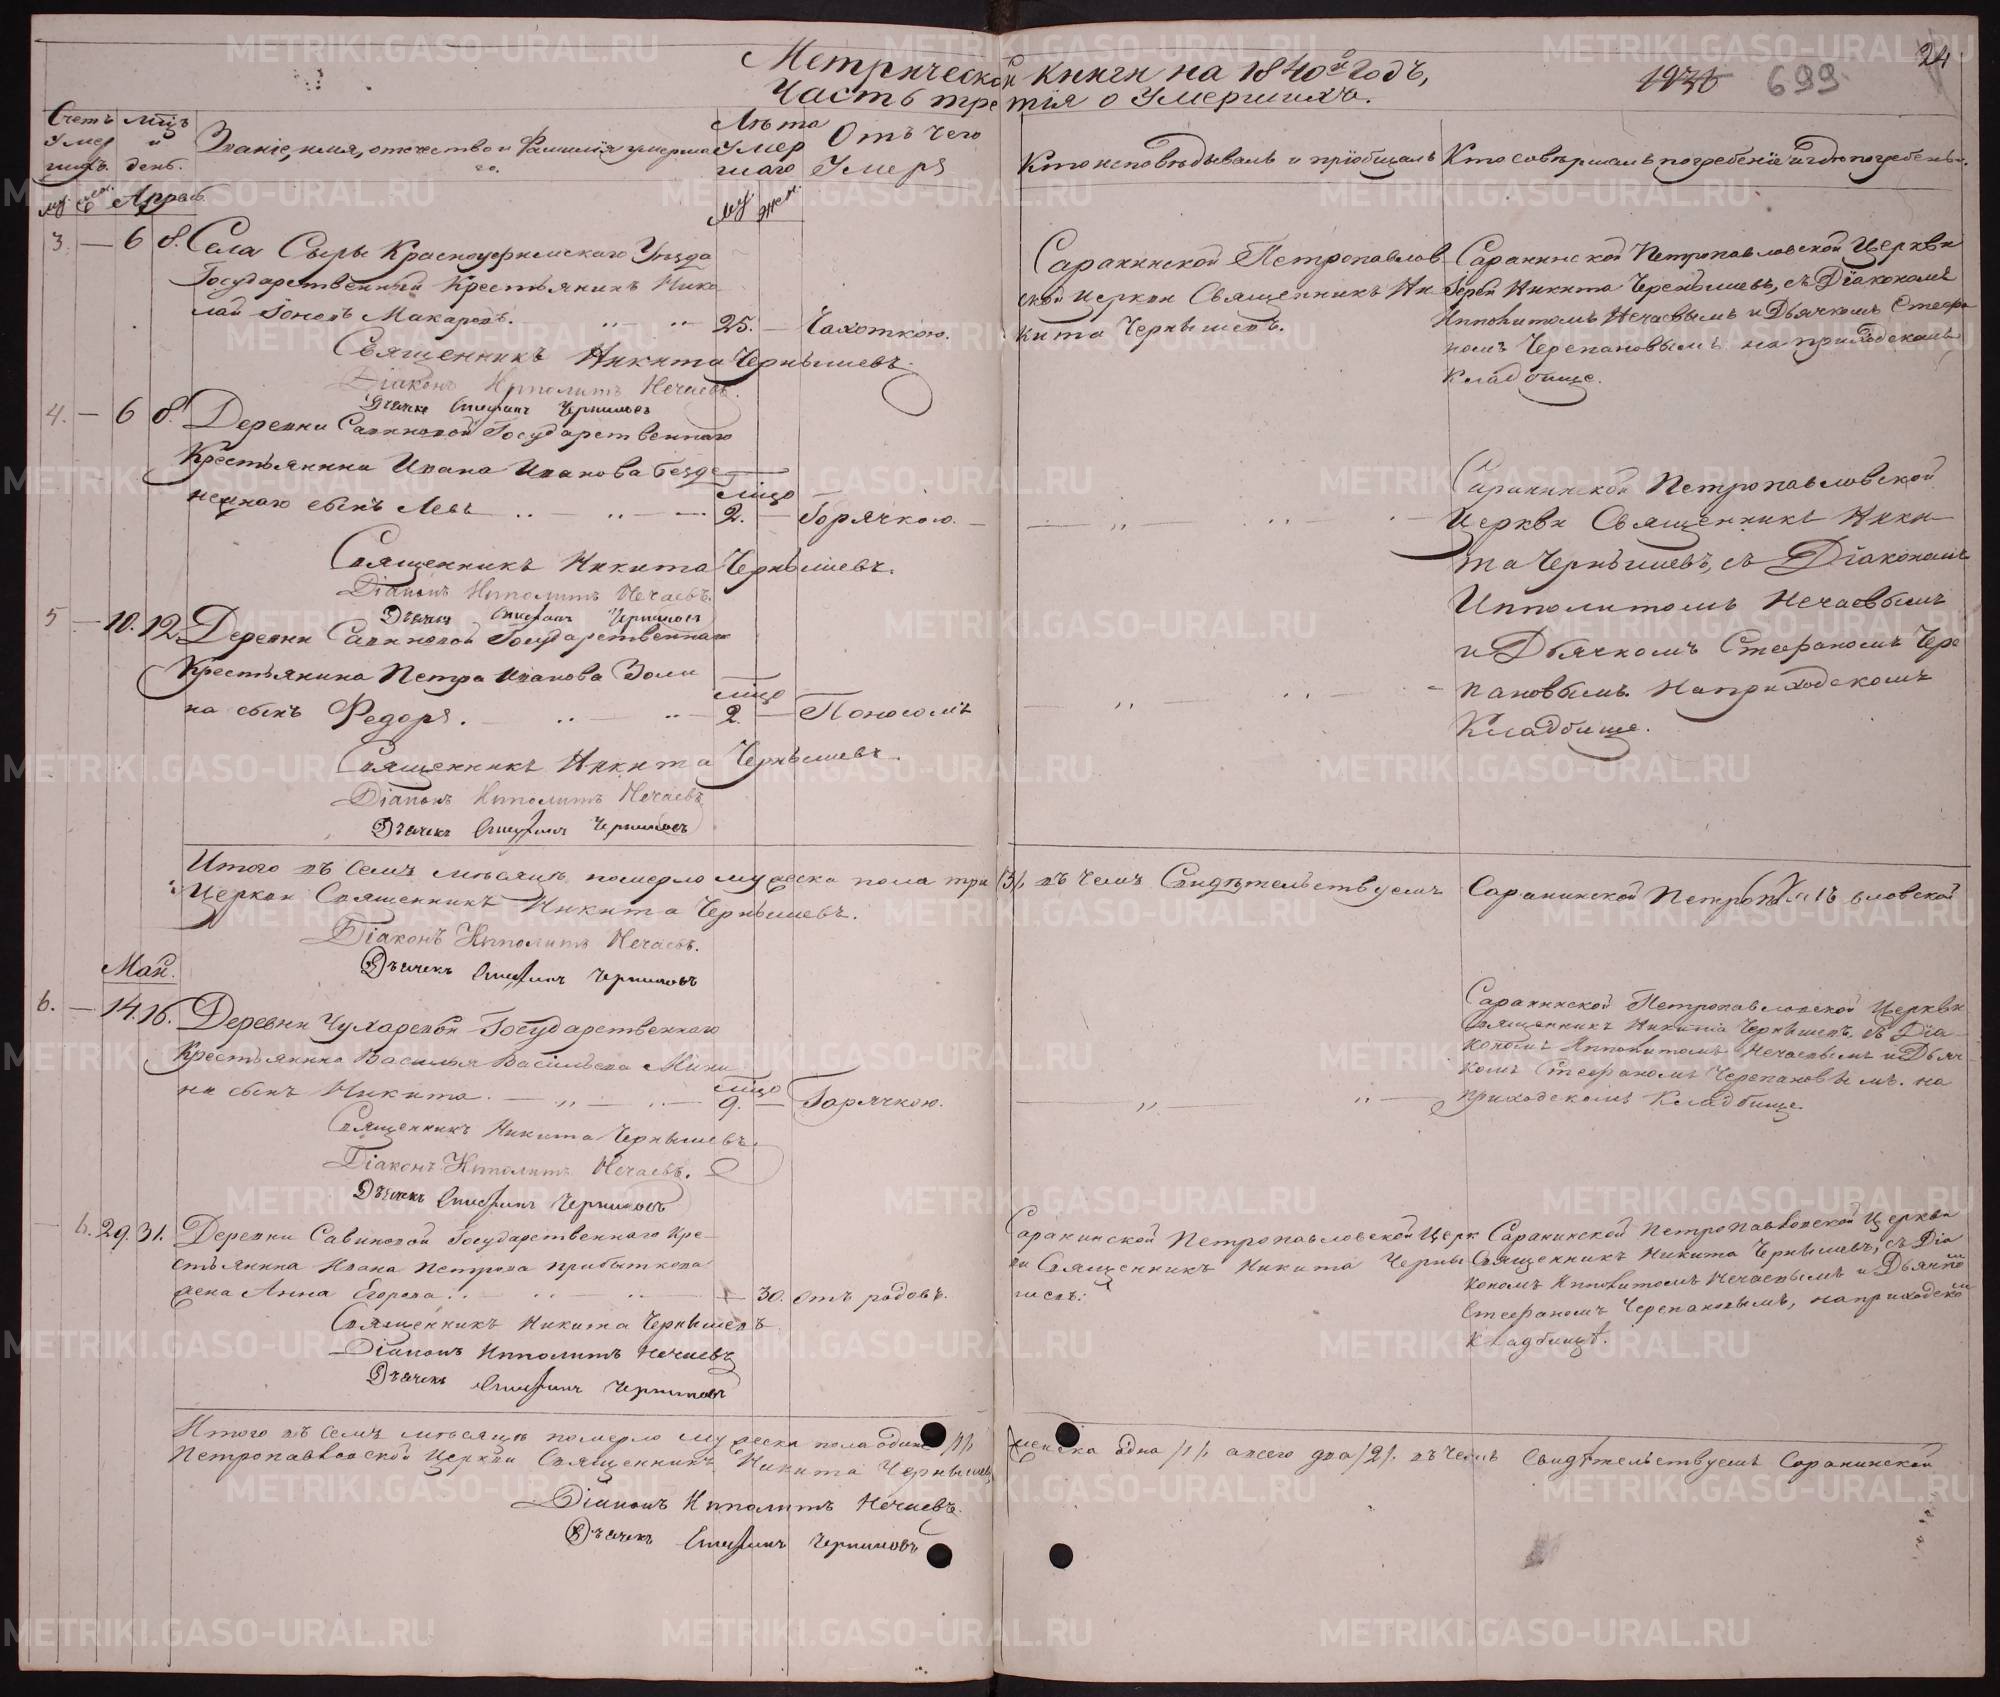 Метрической книги на 1840й Годъ,
Часть третія о Умершихъ.
1930 699. 24
Счетъ Умершихъ
Мцъ и день.
Званіе, имя, отечество и Фамилія умершаго.
Лѣта Умершаго
Отъ чего Умеръ
Кто исповѣдывалъ и пріобщалъ
Кто совѣршалъ погребеніе и гдѣ погребенъ.
му. жен. Апрѣль му. жен.
3. — 6 8. Села Сыры Красноуфимскаго Уѣзда
Государственный Крестьянинъ Нико
лай Іоневъ Макаровъ. 25. — Чахоткою.
Саранинской Петропавлов
ской церкви Священникъ Ни
кита Чернышевъ.
Саранинской Петропавловской Церкви
Іерей Никита Чернышевъ, съ Діакономъ
Ипполитомъ Нечаевымъ и Дьячкомъ Стефа
номъ Черепановымъ на приходскомъ
Кладбище.
Священникъ Никита Чернышевъ.
Діаконъ Ипполитъ Нечаевъ.
Дьячекъ Стефанъ Черепановъ
4. — 6 8. Деревни Савиновой Государственнаго
Крестьянина Ивана Иванова
сынъ Левъ 2. — Горячкою.
Саранинской Петропавловской
Церкви Священникъ Ники
та Чернышевъ, съ Діакономъ
Ипполитомъ Нечаевымъ
и Дьячкомъ Стефаномъ Чере
пановымъ. На приходскомъ
Кладбище.
Священникъ Никита Чернышевъ.
Діаконъ Ипполитъ Нечаевъ.
Дьячекъ Стефанъ Черепановъ
5 — 10. 12. Деревни Савиновой Государственнаго
Крестьянина Петра Иванова Золи
на сынъ Федоръ. 2. — Поносомъ
Священникъ Никита Чернышевъ.
Діаконъ Ипполитъ Нечаевъ
Дьячекъ Стефанъ Черепановъ
Итого въ семъ мѣсяцѣ померло мужеска пола три /3/. въ чемъ Свидѣтельствуемъ Саранинской Петропавловской
Церкви Священникъ Никита Чернышевъ.
Діаконъ Ипполитъ Нечаевъ.
Дьячекъ Стефанъ Черепановъ
Май.
6. — 14. 16. Деревни Чухаревой Государственнаго
Крестьянина Василья Васильева Мини
на сынъ Никита. 9. — Горячкою.
Саранинской Петропавловской Церкви
Священникъ Никита Чернышевъ, съ Діа
кономъ Ипполитомъ Нечаевымъ и Дьяч
комъ Стефаномъ Черепановымъ. на
приходскомъ Кладбище.
Священникъ Никита Чернышевъ.
Діаконъ Ипполитъ Нечаевъ.
Дьячекъ Стефанъ Черепановъ
— 29. 31. Деревни Савиновой Государственнаго Кре-
стьянина Ивана Петрова Прибыткова
жена Анна Егорова. — 30. отъ родовъ.
Саранинской Петропавловской Церк
ви Священникъ Никита Черны
шевъ.
Саранинской Петропавловской Церкви
Священникъ Никита Чернышевъ, съ Діа
кономъ Ипполитомъ Нечаевымъ и Дьячкомъ
Стефаномъ Черепановымъ, на приходском
кладбищѣ.
Священникъ Никита Чернышевъ
Діаконъ Ипполитъ Нечаевъ
Дьячекъ Стефанъ Черепановъ
Итого въ семъ мѣсяцѣ померло мужеска пола одинъ /1/ женска одна /1/. а всего два /2/. въ чемъ Свидѣтельствуемъ Саранинской
Петропавловской Церкви Священникъ Никита Чернышевъ
Діаконъ Ипполитъ Нечаевъ.
Дьячекъ Стефанъ Черепановъ
METRIKI.GASO-URAL.RU